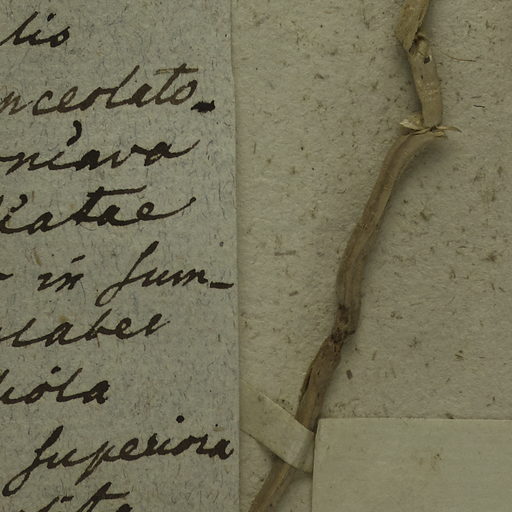 lis
nceolato-
oniava
liatae
in sum-
glabel
hiola
superiora